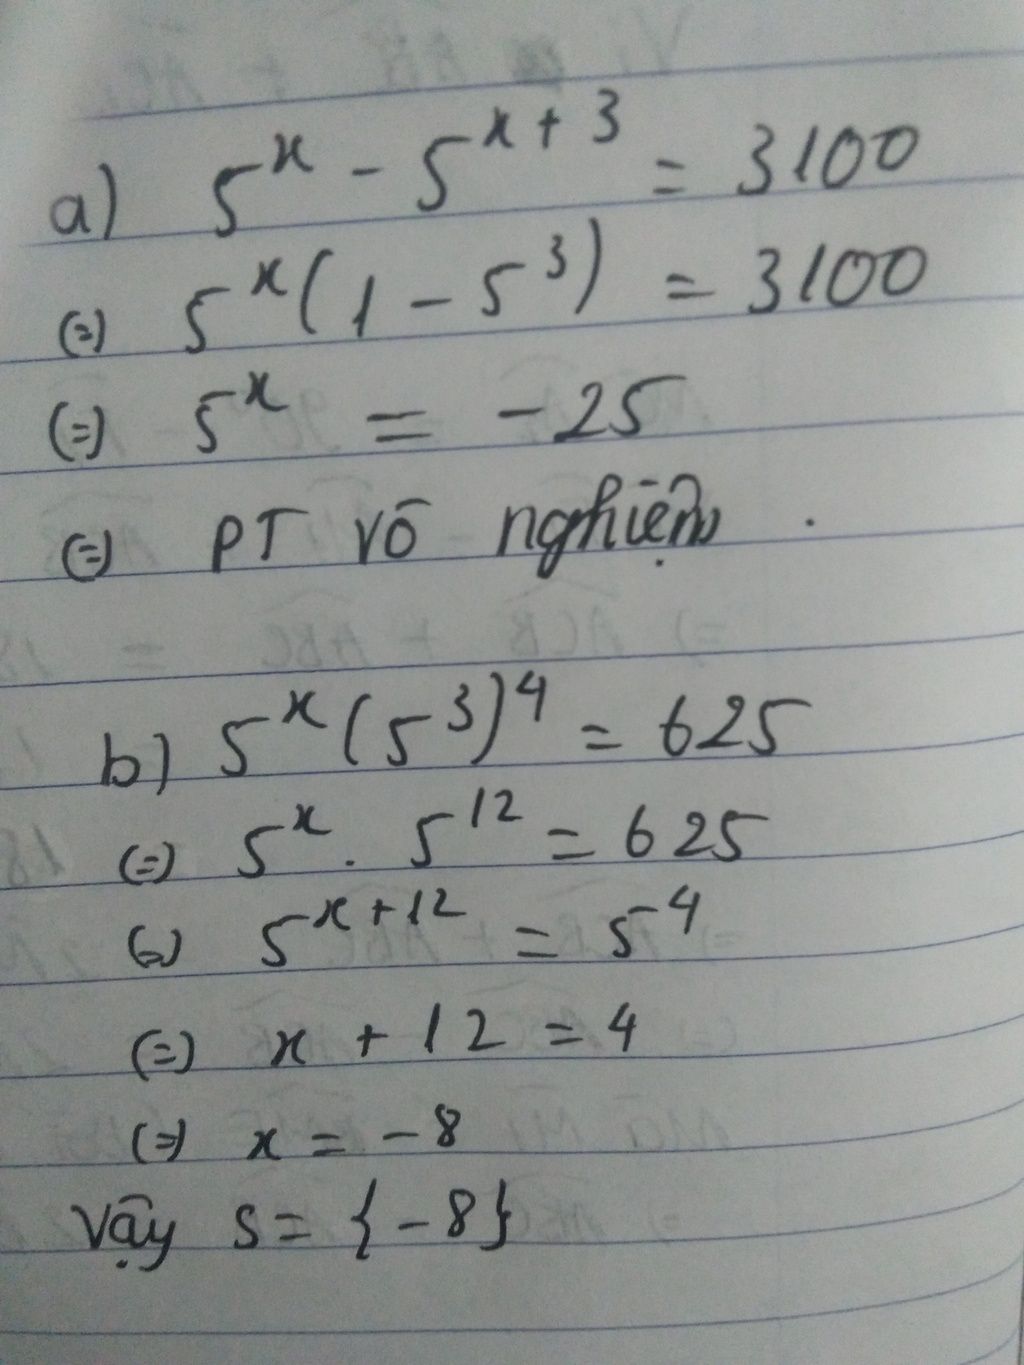 a) 5^x - 5^{x+3} = 3100
(=) 5^x (1 - 5^3) = 3100
(=) 5^x = -25
(=) PT vô nghiệm .
b) 5^x (5^3)^4 = 625
(=) 5^x . 5^{12} = 625
(=) 5^{x+12} = 5^4
(=) x + 12 = 4
(=) x = -8
Vậy S = {-8}